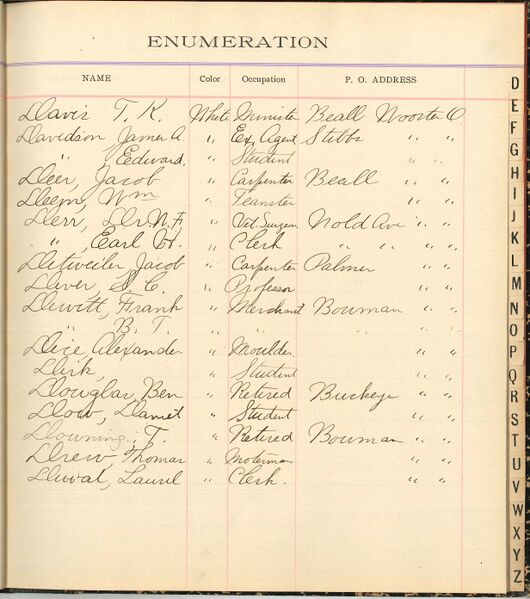 ENUMERATION
NAME Color Occupation P. O. ADDRESS
Davis T. K. White Minister Beall Wooster O
Davidson James A. " Ex. Agent Stibbs " "
" Edward. " Student " "
Deer, Jacob " Carpenter Beall " "
Deem, Wm " Teamster " "
Derr, Dr. N. F. " Vet. Surgeon Nold Ave " "
" , Earl W. " Clerk " " " "
Detweiler, Jacob " Carpenter Palmer " "
Dever, S. C. " Professor " "
Dewitt, Frank " Merchant Bowman " "
" B. T. " " " "
Dice, Alexander " Moulder. " "
Dirk, " Student " "
Douglas, Ben " Retired Buckeye " "
Dow, Daniel " Student " "
Downing, T. " Retired Bowman " "
Drew Thomas " Moterman " "
Duval, Laurel " Clerk. " "
D
E
F
G
H
I
J
K
L
M
N
O
P
Q
R
S
T
U
V
W
X
Y
Z